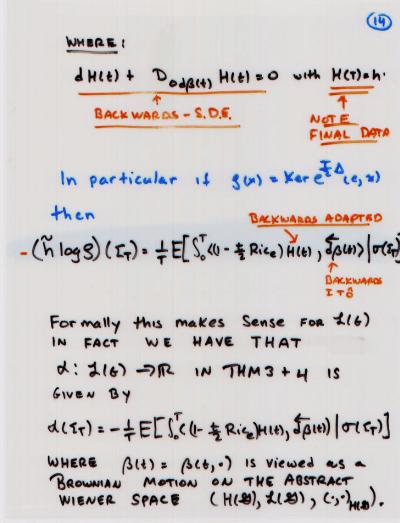 14
WHERE:
dH(t) + D_{∘dβ(t)} H(t) = 0 with H(T)=h.
BACKWARDS - S.D.E.
NOTE
FINAL DATA
In particular if ρ(x) = Ker e^{\frac{T}{2}Δ}(e, x)
then
BACKWARDS ADAPTED
-(h̃ log ρ)(Σ_T) = \frac{1}{T} E[∫_0^T <(1 - \frac{t}{2} Ric_e) H(t), \overleftarrow{d}β(t)> | σ(Σ_T)]
BACKWARDS
ITÔ
Formally this makes Sense FOR L(G)
IN FACT WE HAVE THAT
α: L(G) → R IN THM 3 + 4 IS
GIVEN BY
α(Σ_T) = -\frac{1}{T} E[∫_0^T <(1 - \frac{t}{2} Ric_e) H(t), \overleftarrow{d}β(t)> | σ(Σ_T)]
WHERE β(t) = β(t,·) is viewed as a
BROWNIAN MOTION ON THE ABSTRACT
WIENER SPACE (H(G), L(G), (·,·)_{H(G)}).